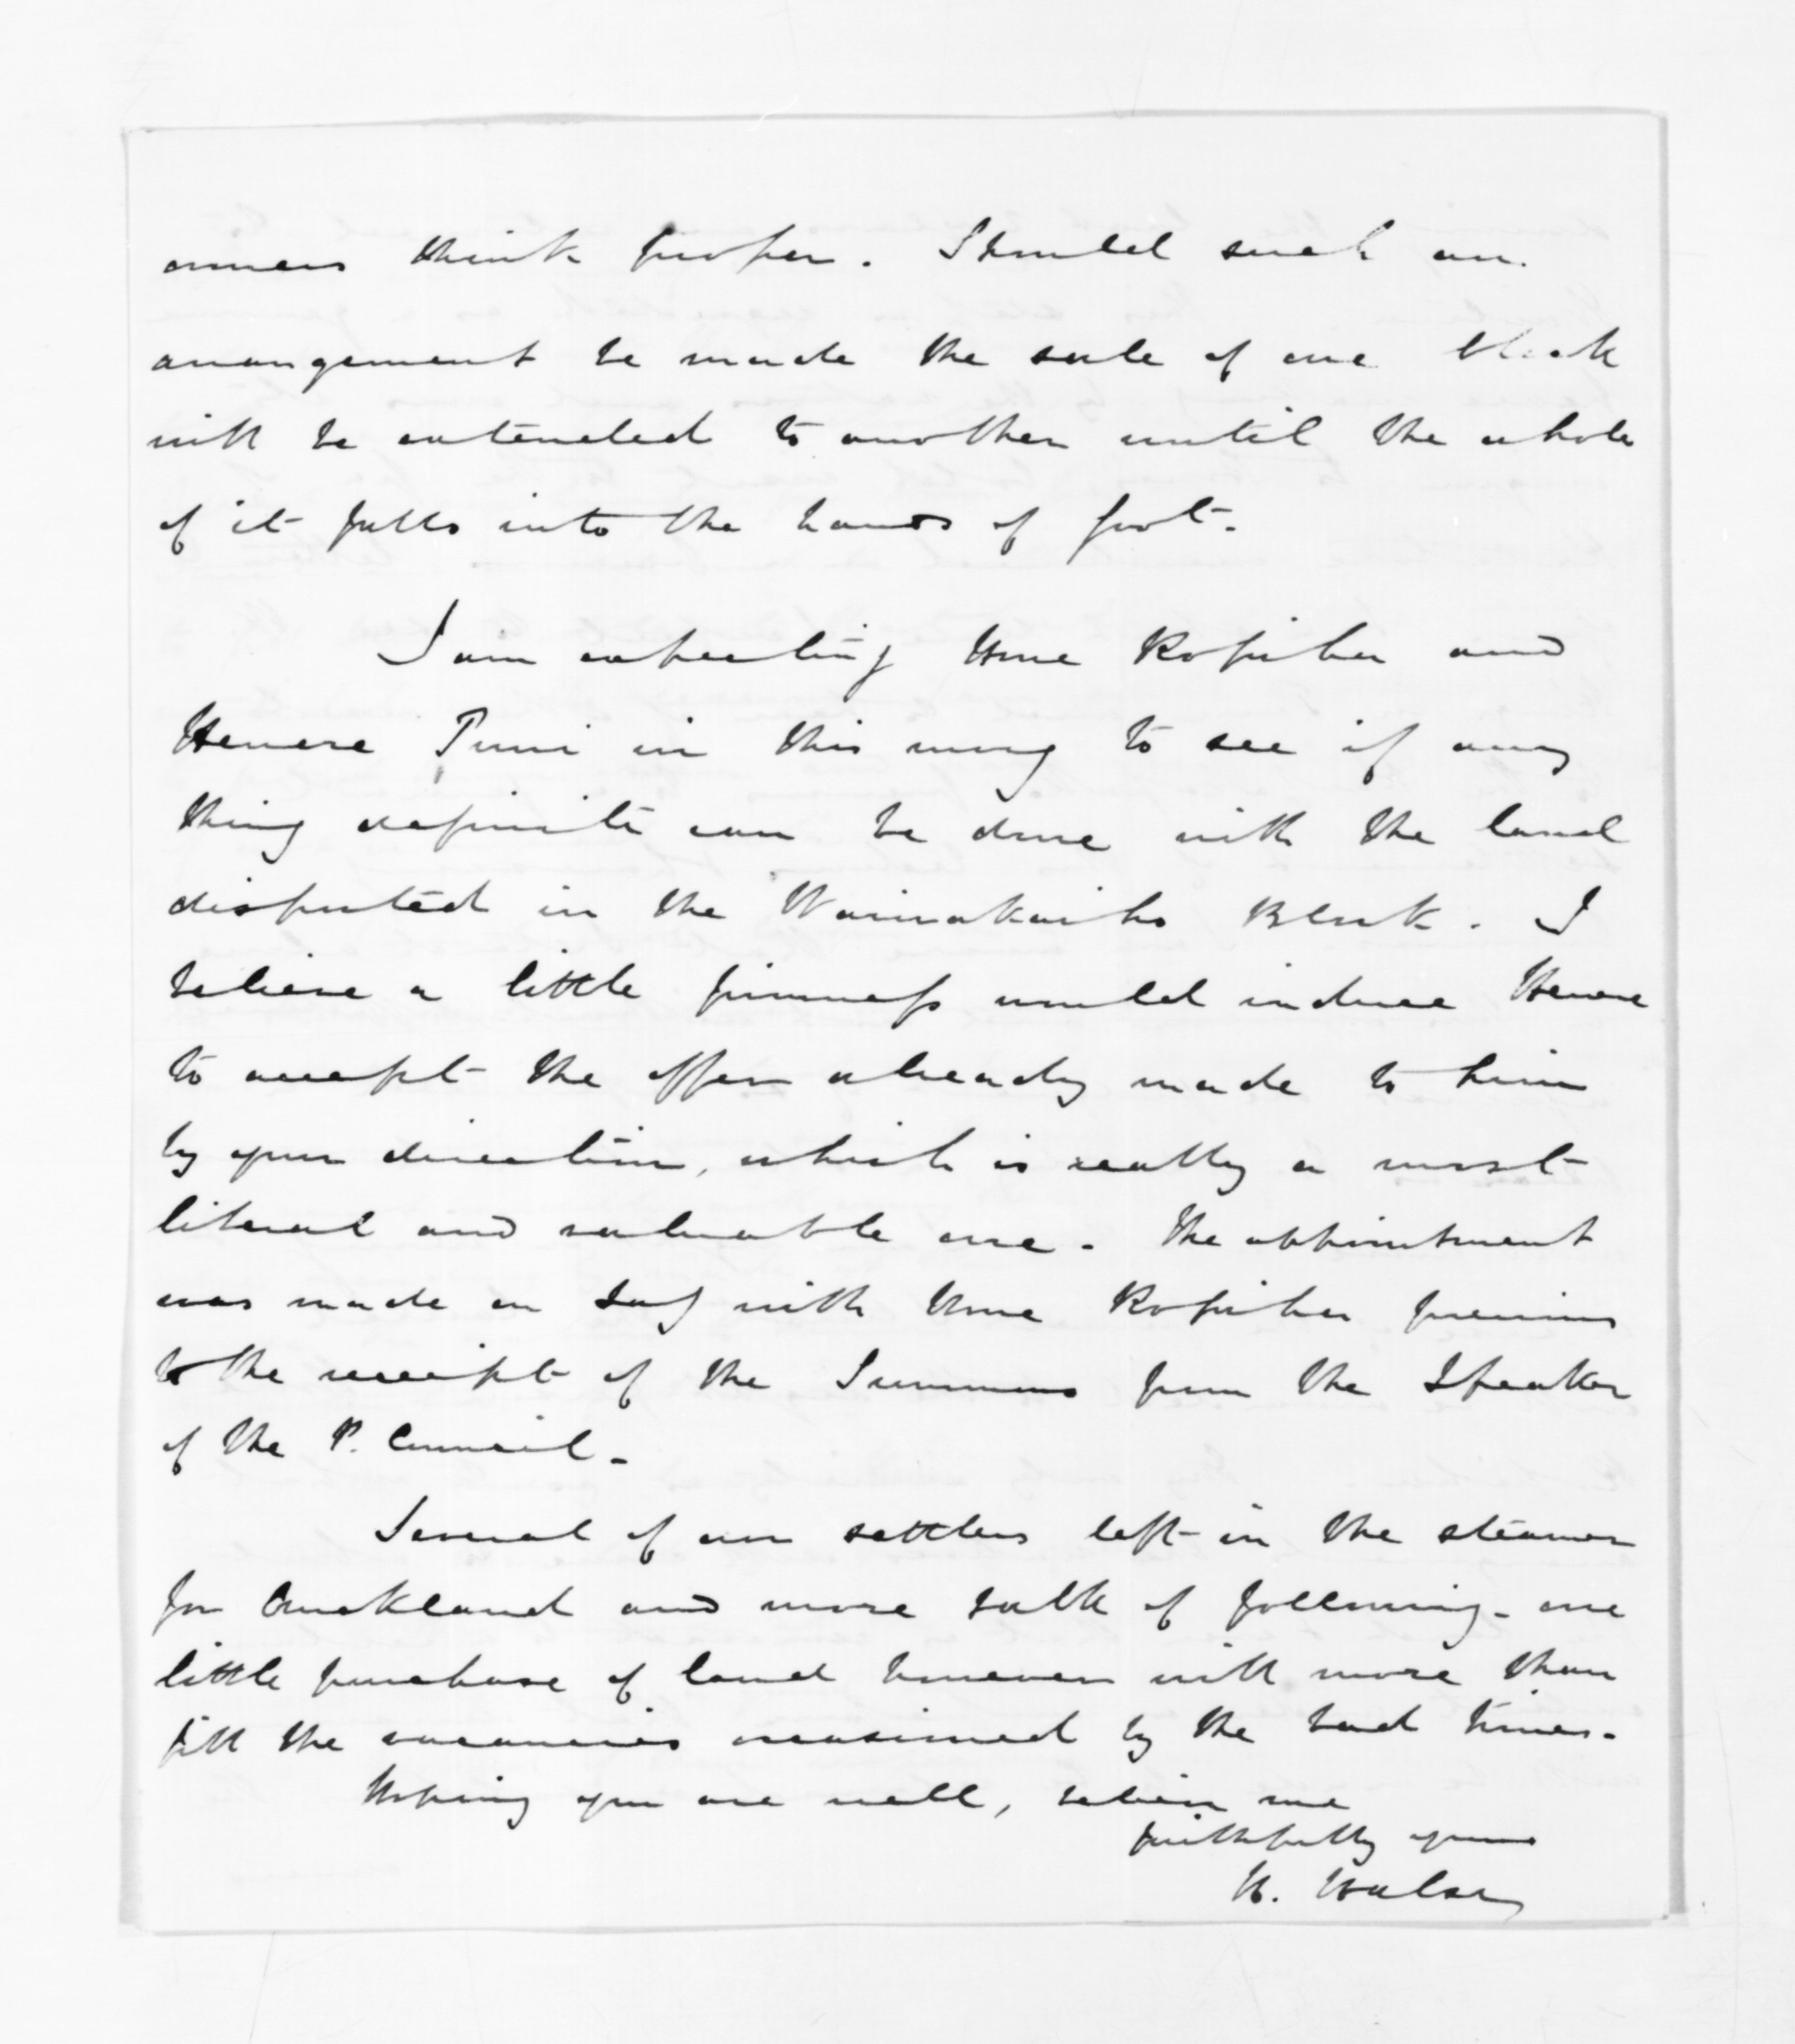 owners think proper. Should such an
arrangement be made the sale of one block
will be extended to another until the whole
of it falls into the hands of Govt.
I am expecting Hone Ropiha and
Henere Puni in this morng to see if any
thing definite can be done with the land
disputed in the Waiwakaiho Block. I
believe a little firmness would induce Henere
to accept the offer already made to him
by your direction, which is really a most
liberal and valuable one. The appointment
was made on Saty with Hone Ropiha previous
to the receipt of the Summons from the Speaker
of the P. Council.
Several of our settlers left in the steamer
for Auckland and more talk of following - one
little purchase of land however will more than
fill the vacancies occasioned by the bad times.
Hoping you are well, believe me
faithfully yours
H. Halse